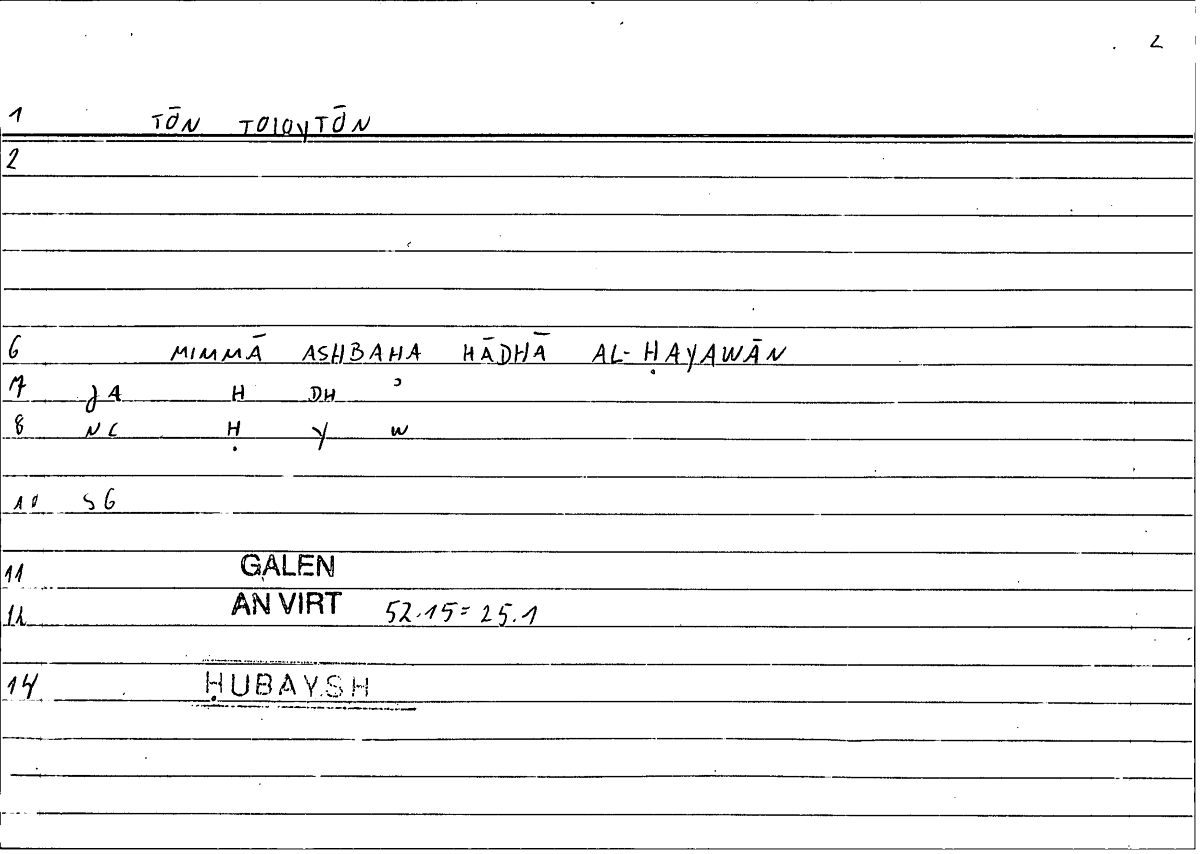 2
1 TŌN TOIOYTŌN
2
6 MIMMĀ ASHBAHA HĀDHĀ AL-ḤAYAWĀN
7 JA H DH ʾ
8 NC Ḥ Y W
10 SG
11 GALEN
12 AN VIRT 52.15=25.1
14 ḤUBAYSH